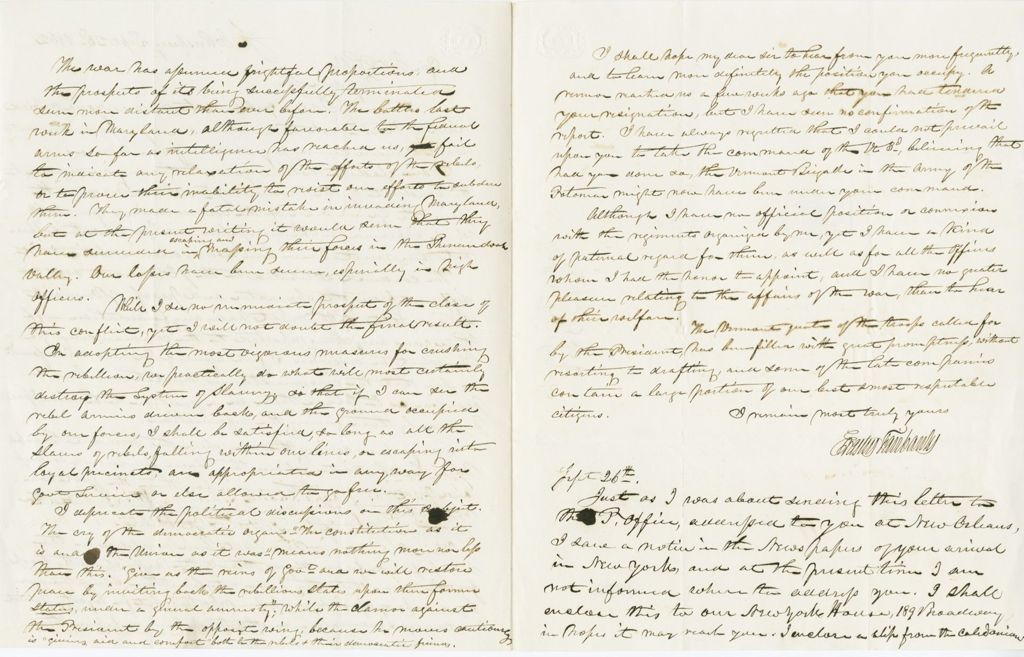 The war has assumed frightful proportions and
the prospects of its being successfully terminated
seem more distant than ever before. The battles last
week in Maryland, although favorable to the federal
arms so far as intelligence has reached us, fail
to indicate any relaxation of the efforts of the Rebels,
or to prove their inability to resist our efforts to subdue
them. They made a fatal mistake in invading Maryland,
but at the present writing it would seem that they
have succeeded in escaping and massing their forces in the Shenandoah
Valley. Our losses have been severe, especially in high
officers. While I see no immediate prospect of the close of
this conflict, yet I will not doubt the final result.
In adopting the most vigorous measures for crushing
the rebellion, we practically do what will most certainly
destroy the System of Slavery, so that if I can see the
rebel armies driven back, and the ground occupied
by our forces, I shall be satisfied, so long as all the
slaves of rebels, falling within our lines, or escaping into
loyal precincts are appropriated in any way for
Govt Service or else allowed to go free.
I deprecate the political discussions on this subject.
The cry of the democratic organs "The constitution as it
is and the Union as it was" means nothing more nor less
than this. "Give us the reins of Govt and we will restore
peace by inviting back the rebellious States upon their former
status, under a general amnesty"; while the clamor against
the President by the opposite wing, because he moves cautiously
is "giving aid and comfort both to the rebels & their democratic friends.
I shall hope my dear sir to hear from you more frequently
and to learn more definitely the position you occupy. A
rumor reached us a few weeks ago that you had tendered
your resignation, but I have seen no confirmation of the
report. I have always regretted that I could not prevail
upon you to take the command of the Vt 3d, believing that
had you done so, the Vermont Brigade in the Army of the
Potomac might now have been under your command.
Although I have no official position or connexion
with the regiments organized by me, yet I have a kind
of paternal regard for them, as well as for all the officers
whom I had the honor to appoint, and I have no greater
pleasure relating to the affairs of the war, than to hear
of their welfare. The Vermont quota of the troops called for
by the President, has been filled with great promptness, without
resorting to drafting, and some of the late companies
contain a large portion of our best & most reputable
citizens. I remain most truly yours
Erastus Fairbanks
Sept 26th.
Just as I was about sending this letter to
the P. Office, addressed to you at New Orleans,
I saw a notice in the News papers of your arrival
in New York, and at the present time I am
not informed where to address you. I shall
enclose this to our New York House, 189 Broadway
in hopes it may reach you. I enclose a slip from the Caledonian